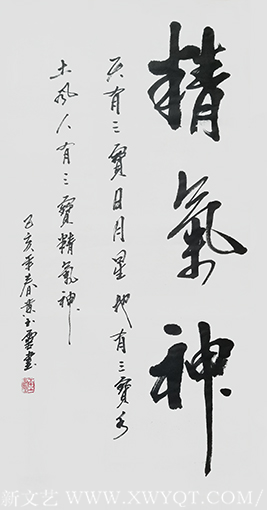 精氣神
天有三寶日月星地有三寶水
土風人有三寶精氣神
己亥年春袁玉雲書
新文艺 WWW.XWYQT.COM